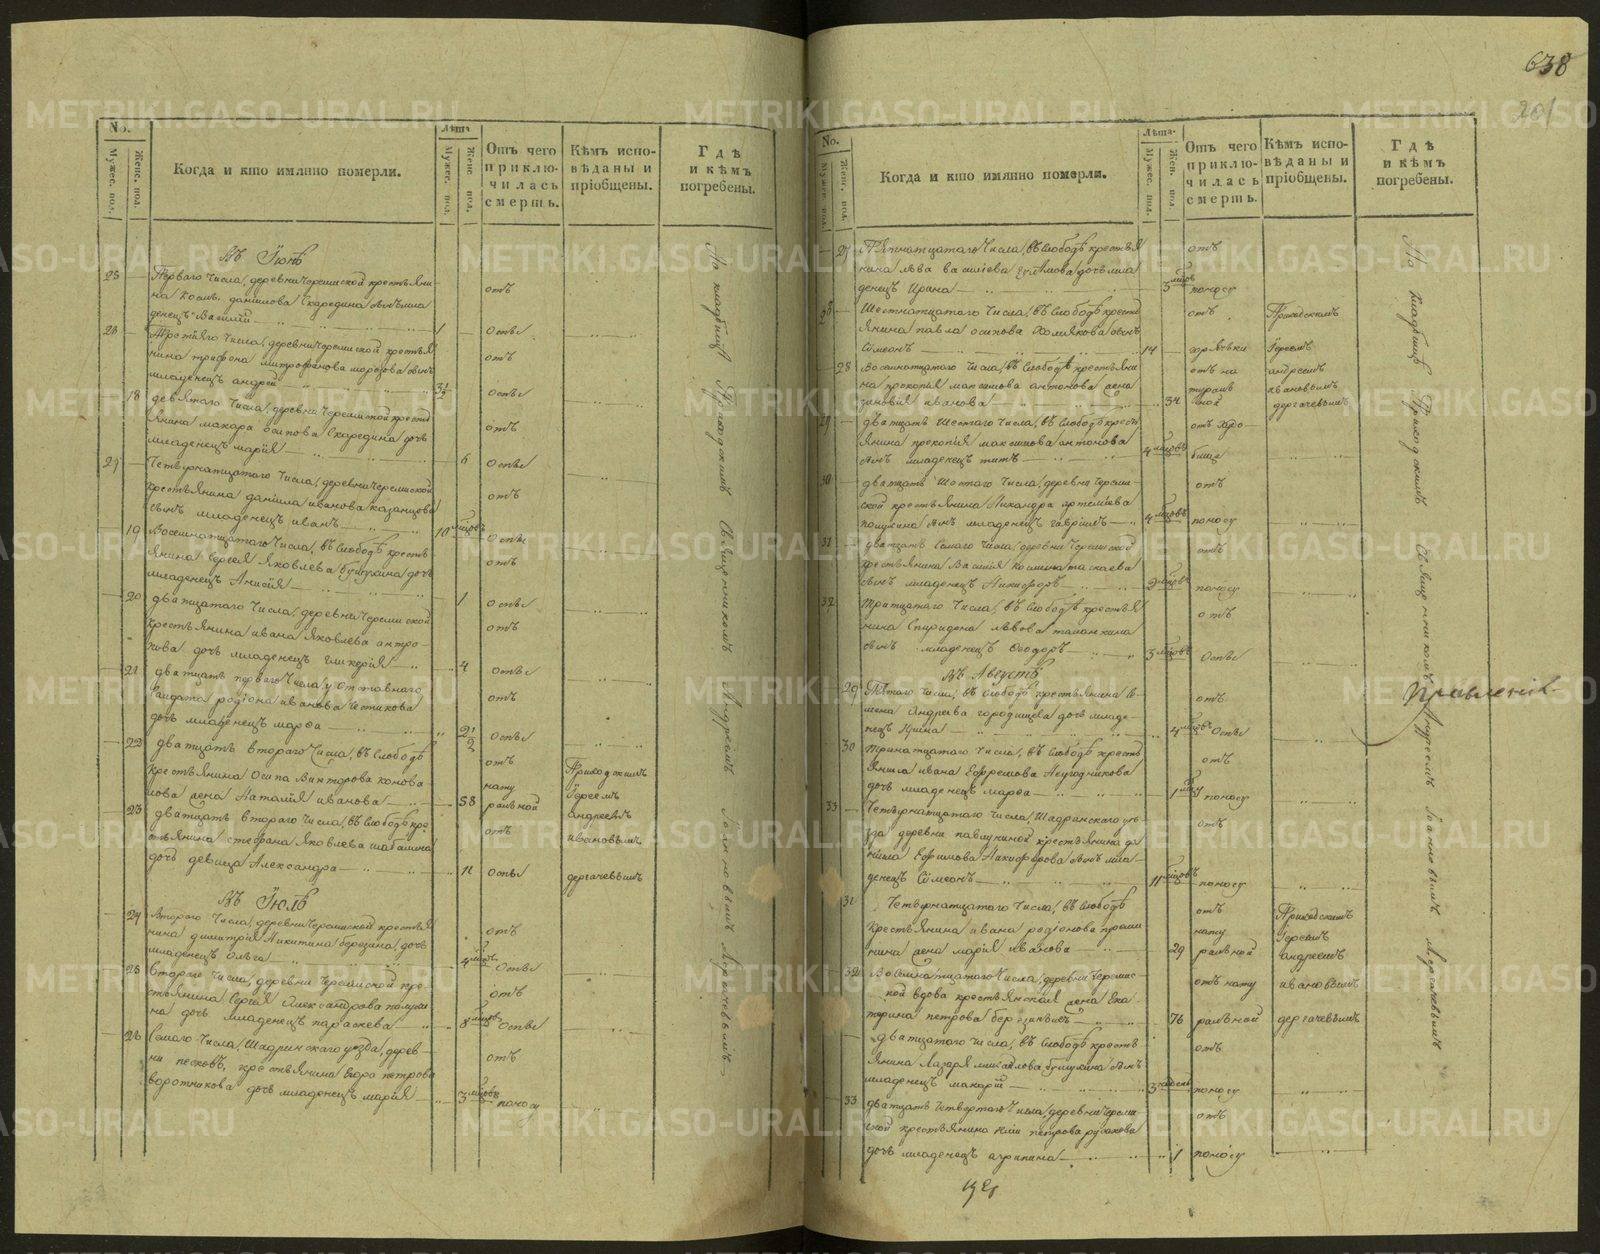 638
201
No.
Мужес. пол.
Женс. пол.
Когда и кто имянно померли.
Лѣта.
Мужес. пол.
Женс. пол.
Отъ чего приклю-чилась смерть.
Кѣмъ испо-вѣданы и пріобщены.
Гдѣ и кѣмъ погребены.
Въ Іюнѣ
25
Перваго числа, деревни Черемиской крестьяни-
на Козмы данилова Скаредина сынъ мла
денецъ Василій
1
отъ
Оспы
26
Третіяго числа, деревни Черемиской крестья
нина трифона митрофанова морозова сынъ
младенецъ андрей
3½
отъ
Оспы
18
девятаго числа, деревни Черемиской кресть
янина макара осипова Скаредина дочь
младенецъ марія
6
отъ
Оспы
27
Четвернатцатаго числа, деревни Черемиской
крестьянина даніила иванова казанцова
сынъ младенецъ иванъ
10 мцовъ
отъ
Оспы
19
Восемнатцатаго числа, въ Слободѣ кресть
янина Сергея Яковлева бунухина дочь
младенецъ Анисія
1
отъ
Оспы
20
дватцатаго числа, деревни Черемиской
крестьянина ивана Яковлева антро-
пова дочь младенецъ гликерія
4
отъ
Оспы
21
дватцать перваго числа, у отставнаго
Салдата родіона иванова Честикова
дочь младенецъ марѳа
2½
отъ
Оспы
22
дватцать втораго числа, въ Слободѣ
крестьянина Осипа Викторова конова
лова жена Наталія иванова
58
отъ
нату
ральной
Приходскимъ
Іереемъ
андреемъ
ивановымъ
дергачевымъ
23
дватцать втораго числа, въ Слободѣ кре
стьянина стефана Яковлева шабалина
дочь девица Александра
12
отъ
Оспы
Въ Іюлѣ
24
Втораго числа, деревни Черемиской крестья
нина димитрія Никитина березина, дочь
младенецъ Ольга
4 мцовъ
отъ
Оспы
25
втораго числа, деревни Черемиской кре-
стьянина Сергія Александрова полухи
на дочь младенецъ параскева
8 мцовъ
отъ
Оспы
26
Семаго числа, Шадринскаго уезда, дерев-
ни песковъ, крестьянина Егора петрова
воротникова дочь младенецъ марія
3 мцовъ
отъ
поносу
На кладбищѣ Приходскимъ Священникомъ Андреемъ Іоанновымъ Дергачевымъ
No.
Мужес. пол.
Женс. пол.
Когда и кто имянно померли.
Лѣта.
Мужес. пол.
Женс. пол.
Отъ чего приклю-чилась смерть.
Кѣмъ испо-вѣданы и пріобщены.
Гдѣ и кѣмъ погребены.
27
Пятнатцатаго числа, въ Слободѣ крестья
нина льва василіева дочь мла
денецъ Ирина
3 мцов
отъ
поносу
28
Шестнатцатаго числа, въ Слободѣ кресть
янина павла осипова Холмякова сынъ
Сѵмеонъ
14
отъ
горячки
Приходскимъ
Іереемъ
андреемъ
ивановымъ
дергачевымъ
28
Восемнатцатаго числа, въ Слободѣ крестьяни
на прокопія максимова антонова жена
зиновія иванова
34
отъ на
тураль
ной
29
дватцать Шестаго числа, въ Слободѣ кресть
янина прокопія максимова антонова
сынъ младенецъ титъ
4 мцовъ
отъ
30
дватцать Шестаго числа, деревни Череми-
ской крестьянина Никандра артемьева
полухина сынъ младенецъ гавріилъ
4 мцовъ
отъ
поносу
31
дватцать Семаго числа, деревни Черемиской
крестьянина Василія Космина таскаева
сынъ младенецъ Никифоръ
2 мцовъ
отъ
поносу
32
Тритцатаго числа, въ Слободѣ крестья
нина Спиридона львова таланкина
сынъ младенецъ Ѳеодоръ
3 мцовъ
отъ
Оспы
Въ Августѣ
29
Пятаго числа, въ Слободѣ крестьянина Се-
мена Андреева городищева дочь младе-
нецъ Ирина
4 мцовъ
отъ
Оспы
30
Тринатцатаго числа, въ Слободѣ кресть
янина ивана Ефремова Неугодникова
дочь младенецъ марѳа
1
отъ
поносу
33
Четвернатцатаго числа, Шадринскаго уѣ
зда деревни павлукиной крестьянина да
нила Ефимова Никифорова сынъ мла-
денецъ Сѵмеонъ
11 мцовъ
отъ
поносу
31
Четвернатцатаго числа, въ Слободѣ
крестьянина ивана родіонова
нина жена марія иванова
29
отъ
нату
ральной
Приходскимъ
Іереемъ
андреемъ
ивановымъ
дергачевымъ
32
Восемнатцатаго числа, деревни Черемис
кой вдова крестьянская жена Ека
терина петрова березиныхъ
76
отъ нату
ральной
дватцатаго числа, въ Слободѣ кресть
янина Лазаря михайлова бунухина сынъ
младенецъ макарій
3
отъ
поносу
33
дватцать четвертаго числа, деревни Череми
ской крестьянина Иліи петрова русакова
дочь младенецъ агрипина
1
отъ
поносу
На кладбищѣ Приходскимъ Священникомъ Андреемъ Іоанновымъ Дергачевымъ
правленія
METRIKI.GASO-URAL.RU